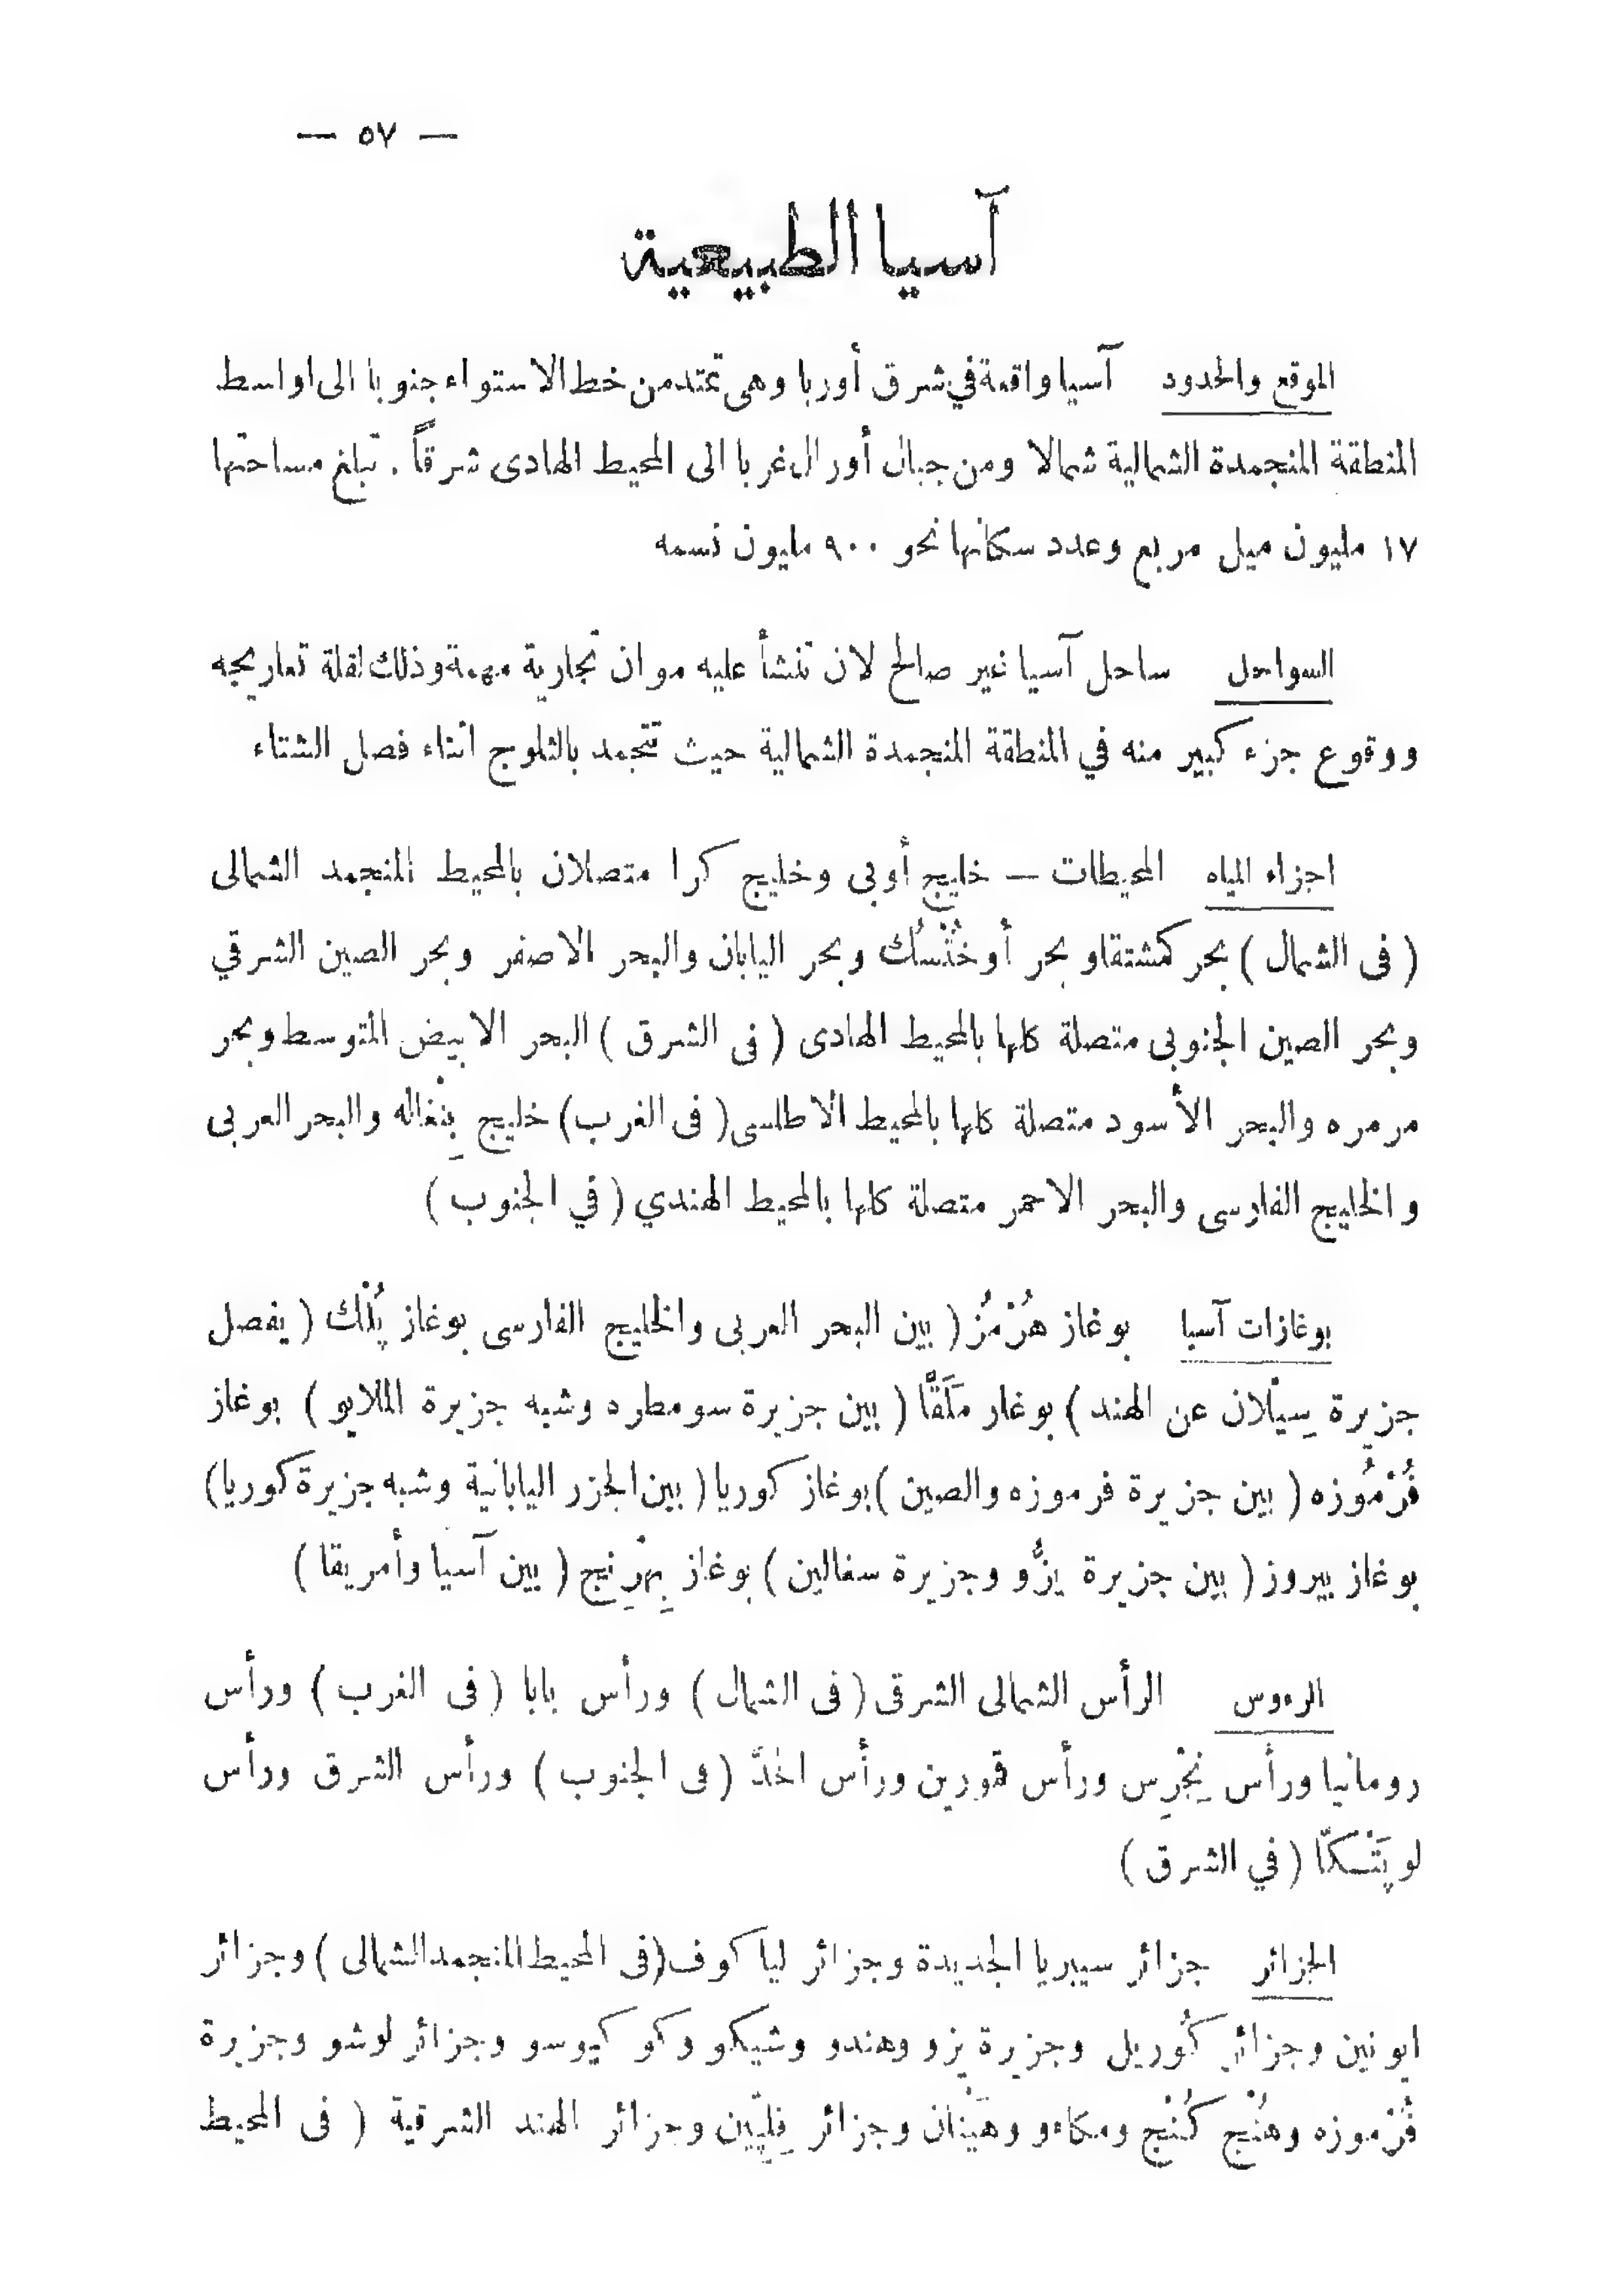 — ٥٧ —
آسيا الطبيعية
الموقع والحدود آسيا واقعة في شرق أوربا وهى تمتد من خط الاستواء جنوبا الى اواسط
المنطقة المنجمدة الشمالية شمالا ومن جبال أورال غربا الى المحيط الهادى شرقاً . تبلغ مساحتها
١٧ مليون ميل مربع وعدد سكانها نحو ٩٠٠ مليون نسمه
السواحل ساحل آسيا غير صالح لان تنشأ عليه موان تجارية مهمة وذلك لقلة تعاريجه
ووقوع جزء كبير منه في المنطقة المنجمدة الشمالية حيث تتجمد بالثلوج اثناء فصل الشتاء
اجزاء المياه المحيطات — خليج أوبى وخليج كرا متصلان بالمحيط المنجمد الشمالى
( فى الشمال ) بحر كمشتقا وبحر أوخُتْسُك وبحر اليابان والبحر الاصفر وبحر الصين الشرقي
وبحر الصين الجنوبى متصلة كلها بالمحيط الهادى ( فى الشرق ) البحر الابيض المتوسط وبحر
مرمره والبحر الأسود متصلة كلها بالمحيط الاطلسى ( فى الغرب ) خليج بِنْغاله والبحر العربى
والخليج الفارسى والبحر الاحمر متصلة كلها بالمحيط الهندي ( في الجنوب )
بوغازات آسيا بوغاز هُرْمُز ( بين البحر العربى والخليج الفارسى بوغاز پُلْك ( يفصل
جزيرة سِيْلان عن الهند ) بوغار مَلَقَّا ( بين جزيرة سومطره وشبه جزيرة الملايو ) بوغاز
فُرْمُوزه ( بين جزيرة فرموزه والصين ) بوغاز كوريا ( بين الجزر اليابانية وشبه جزيرة كوريا )
بوغاز بيروز ( بين جزيرة يزُّو وجزيرة سغالين ) بوغاز بِهْرِنج ( بين آسيا وأمريقا )
الرءوس الرأس الشمالى الشرقى ( فى الشمال ) ورأس بابا ( فى الغرب ) ورأس
رومانيا ورأس نِجْرِس ورأس قمورين ورأس اخدّ ( فى الجنوب ) ورأس الشرق ورأس
لوپَتْسكَّا ( في الشرق )
الجزائر جزائر سيبريا الجديدة وجزائر لياكوف ( فى المحيط المنجمد الشمالى ) وجزائر
ايونين وجزائر كُوريل وجزيرة يزو وهندو وشيكو وكو كيوسو وجزائر لوشو وجزيرة
فُرْموزه وهُنْج كُنْج ومكاءو وهَيْنان وجزائر فِلِپّين وجزائر الهند الشرقية ( فى المحيط